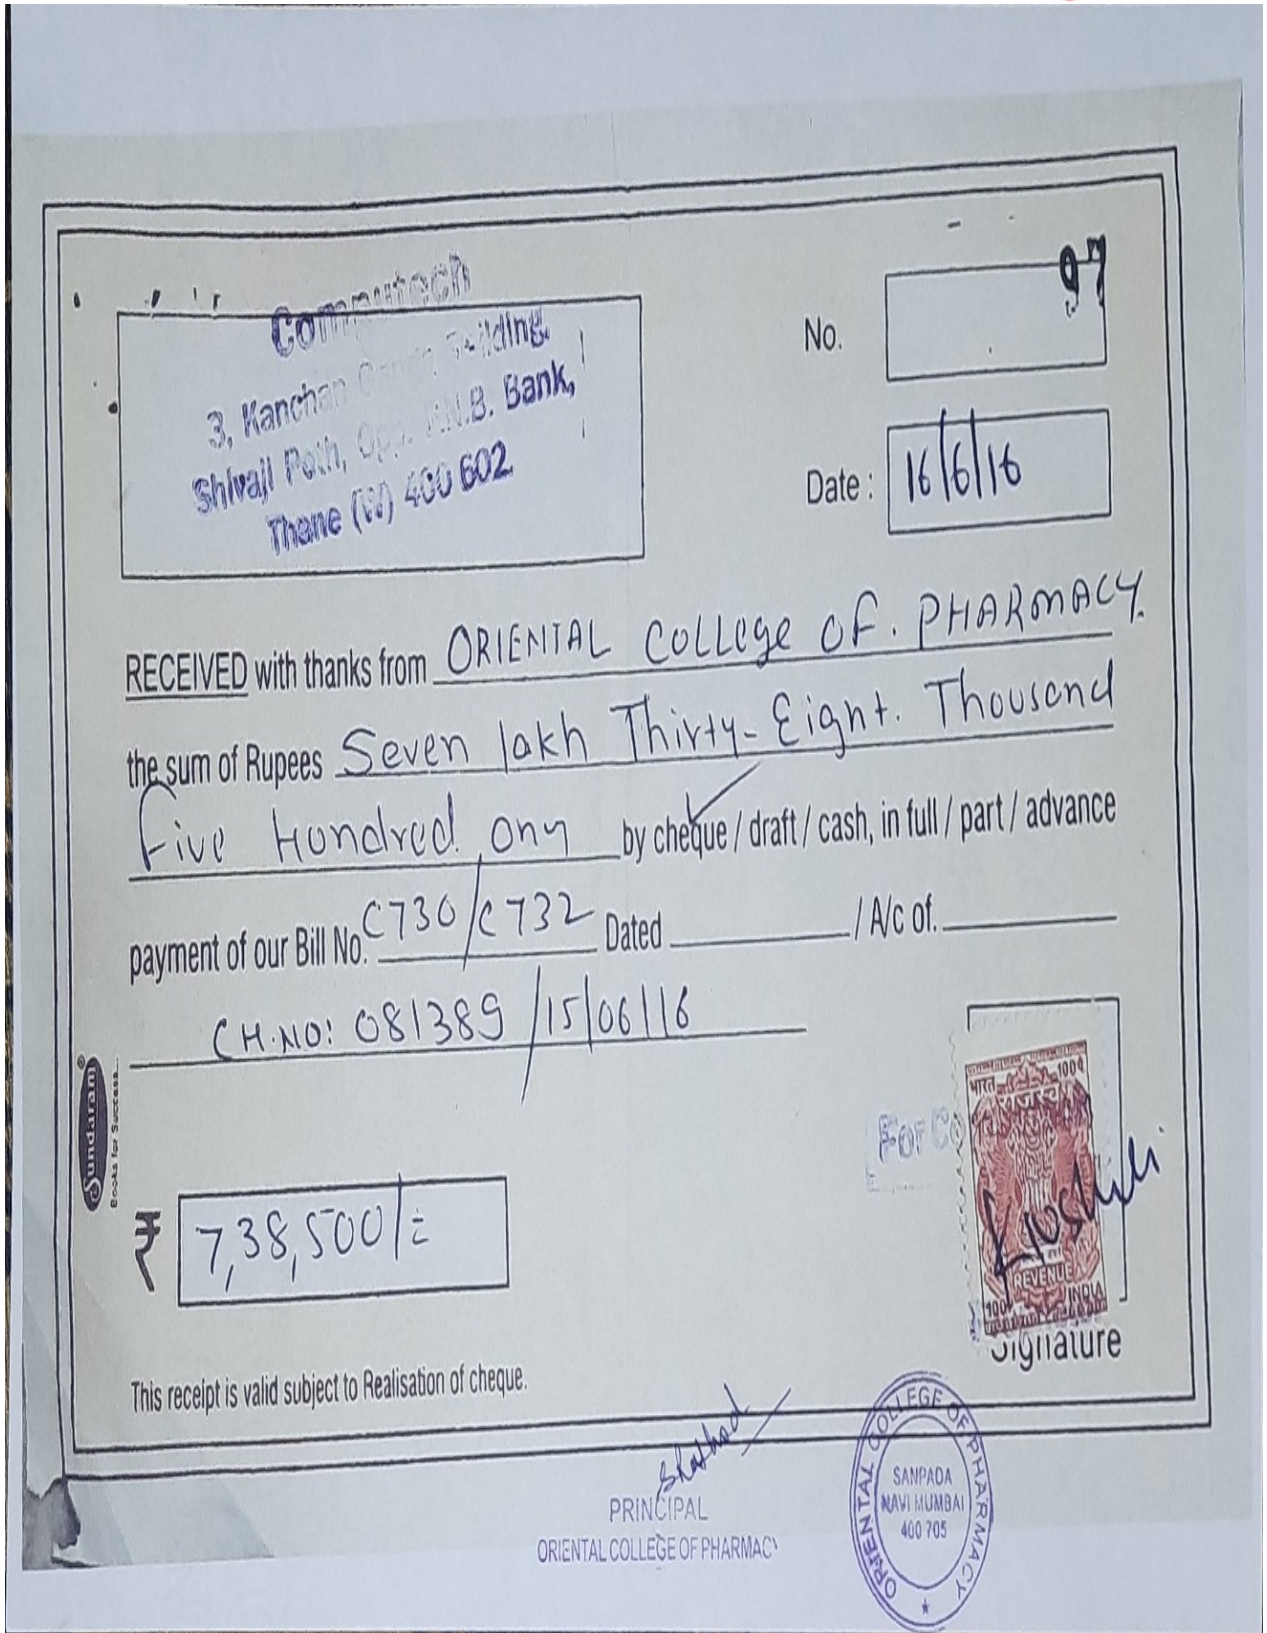 Computech
3, Kanchan Ganga Building,
Shivaji Path, Opp. P.N.B. Bank,
Thane (W) 400 602
No. 97
Date : 16/6/16
RECEIVED with thanks from ORIENTAL COLLEge OF. PHARMACY.
the sum of Rupees Seven lakh Thirty-Eight. Thousand
Five Hundred ony by cheque / draft / cash, in full / part / advance
payment of our Bill No. C730/C732 Dated / A/c of.
CH.NO: 081389 /15/06/16
Sundaram®
Books for Success...
For Co
भारत 100
राजस्व
REVENUE
100 INDIA
₹ 7,38,500/=
Signature
This receipt is valid subject to Realisation of cheque.
PRINCIPAL
ORIENTAL COLLEGE OF PHARMACY
ORIENTAL COLLEGE OF PHARMACY
SANPADA
NAVI MUMBAI
400 705